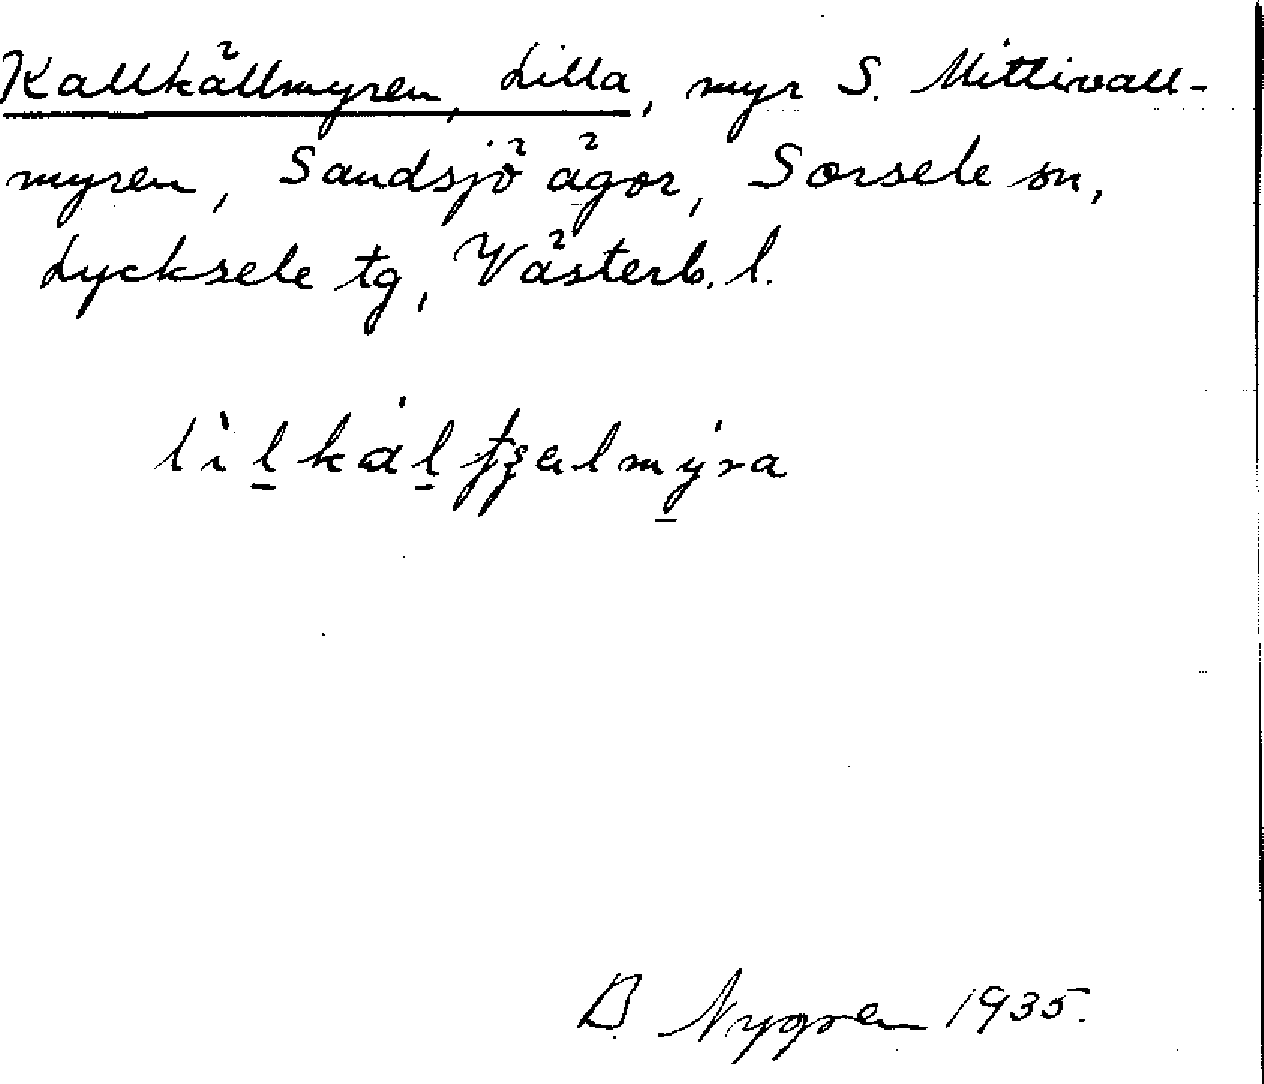 Kallkällmyren, Lilla, myr S. Mittivall-
myren, Sandsjö ägor, Sorsele sn,
Lycksele tg, Västerb. l.
B Nygren 1935.